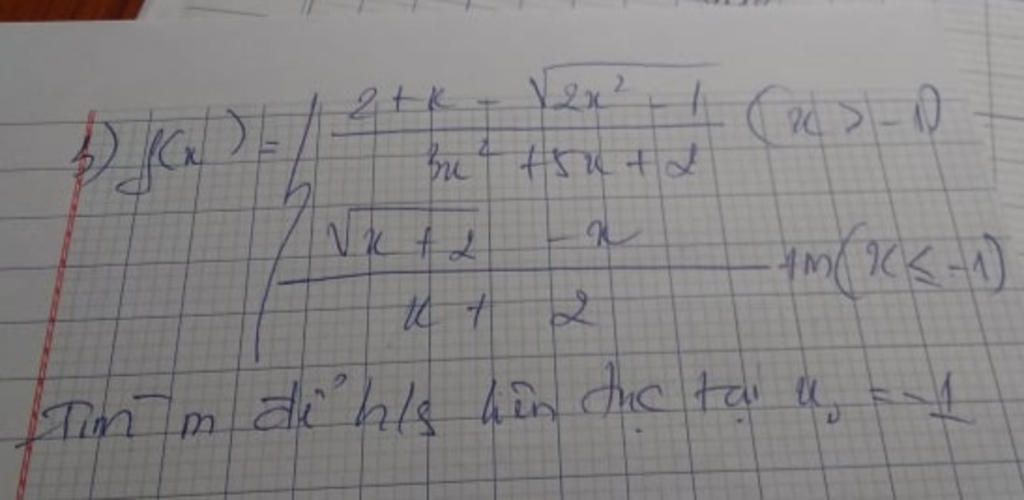 b) f(x) = { (2 + x - √(2x² - 1)) / (3x² + 5x + 2) (x > -1)
(√(x + 2) - x) / (x + 2) + m (x ≤ -1)
Tìm m để h/s liên tục tại x₀ = -1